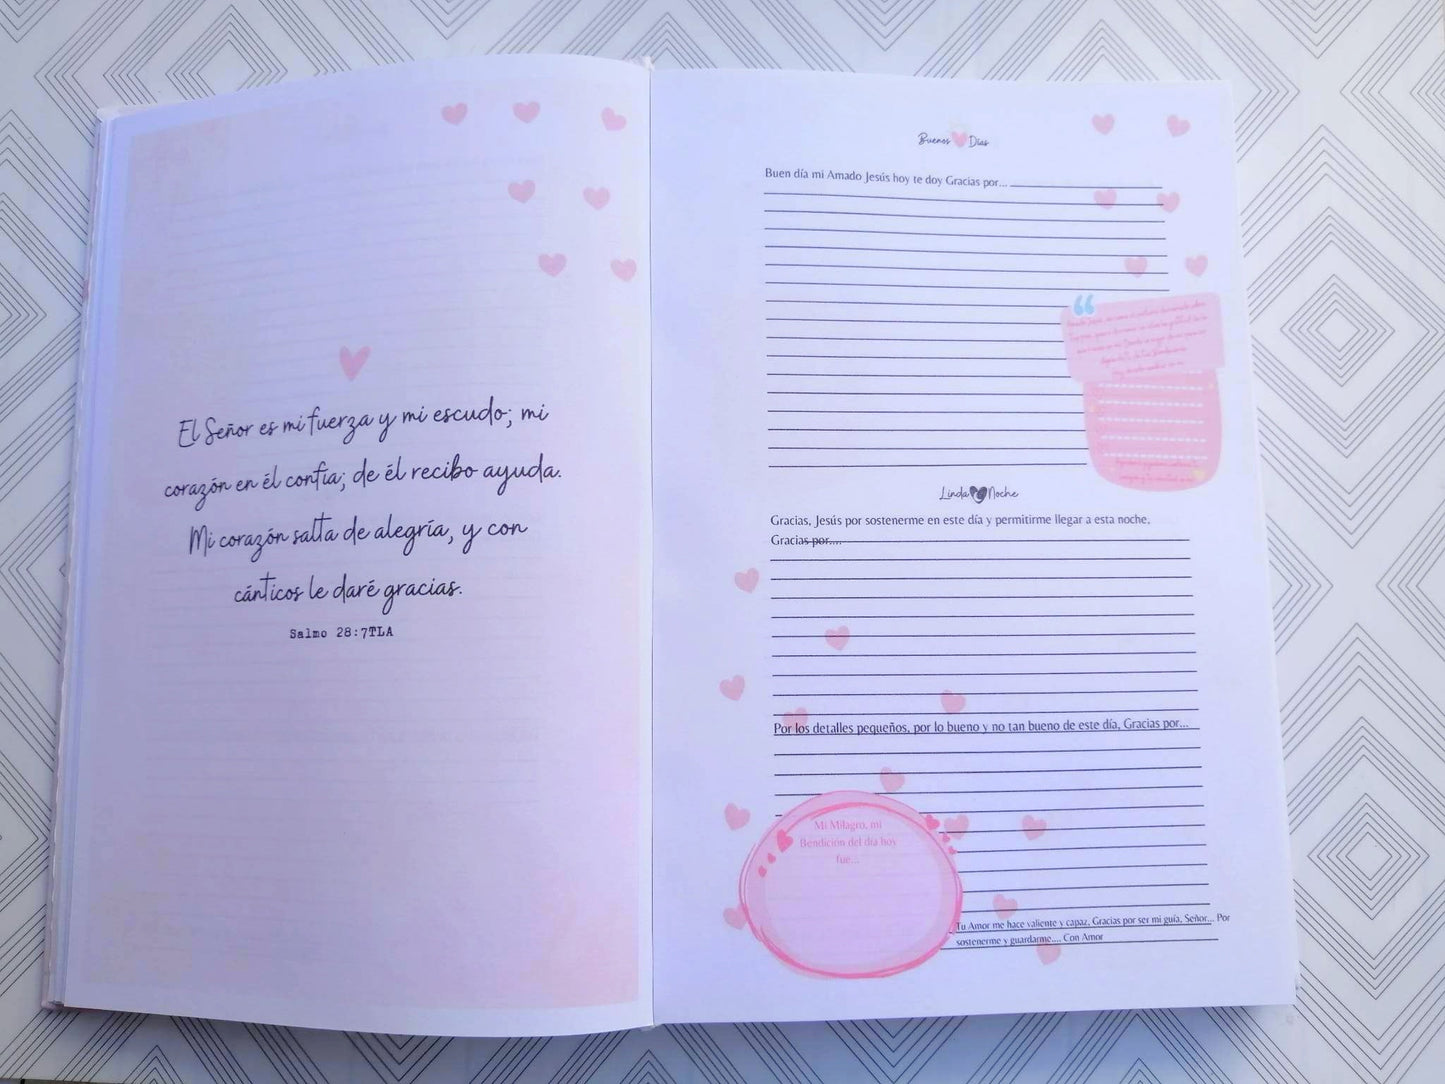 El Señor es mi fuerza y mi escudo; mi
corazón en él confía; de él recibo ayuda.
Mi corazón salta de alegría, y con
cánticos le daré gracias.
Salmo 28:7TLA
Buenos Días
Buen día mi Amado Jesús hoy te doy Gracias por...
Linda Noche
Gracias, Jesús por sostenerme en este día y permitirme llegar a esta noche,
Gracias por....
Por los detalles pequeños, por lo bueno y no tan bueno de este día, Gracias por...
Mi Milagro, mi
Bendición del día hoy
fue...
Tu Amor me hace valiente y capaz, Gracias por ser mi guía, Señor... Por
sostenerme y guardarme.... Con Amor